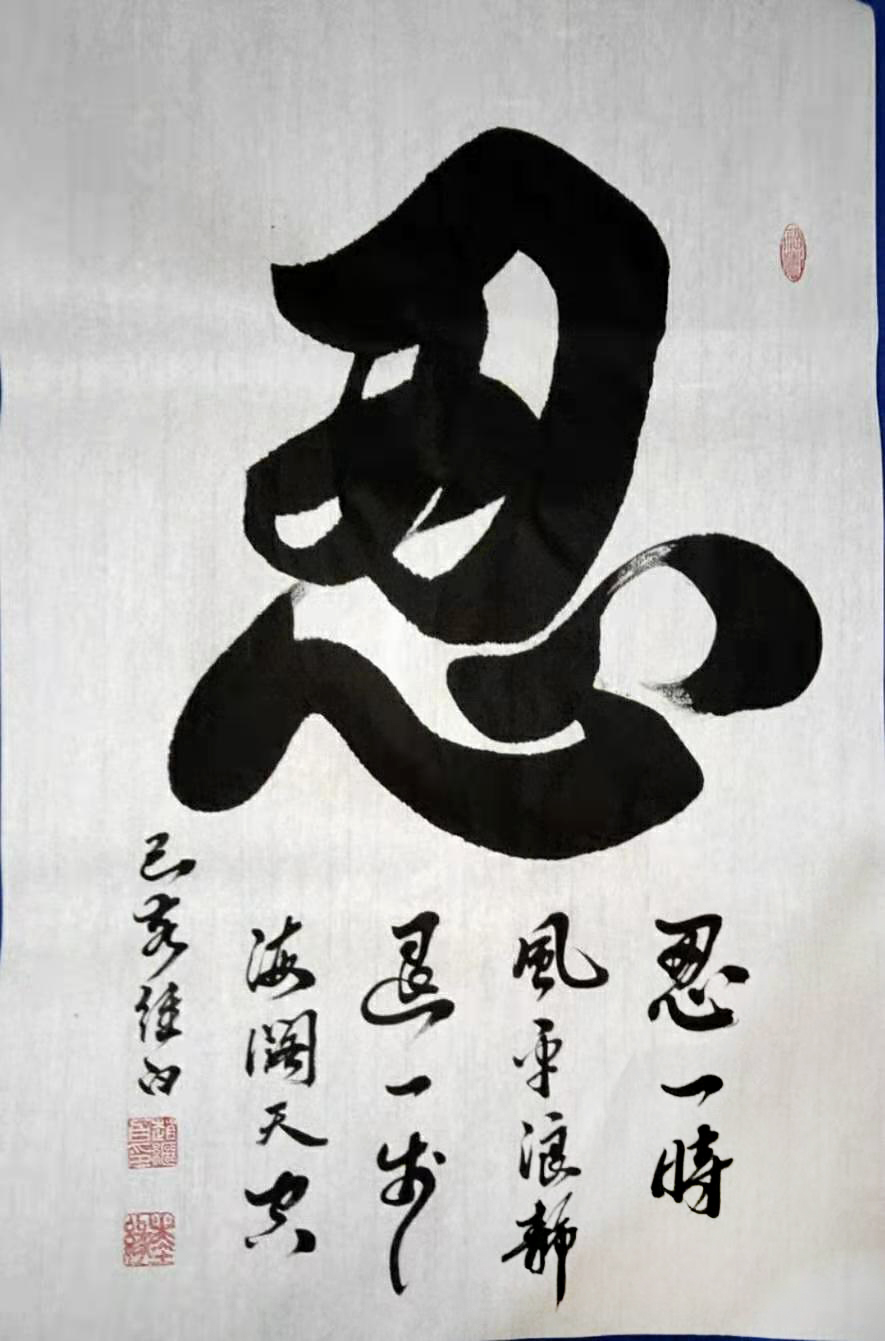 忍
忍一時
風平浪靜
退一步
海闊天空
己亥